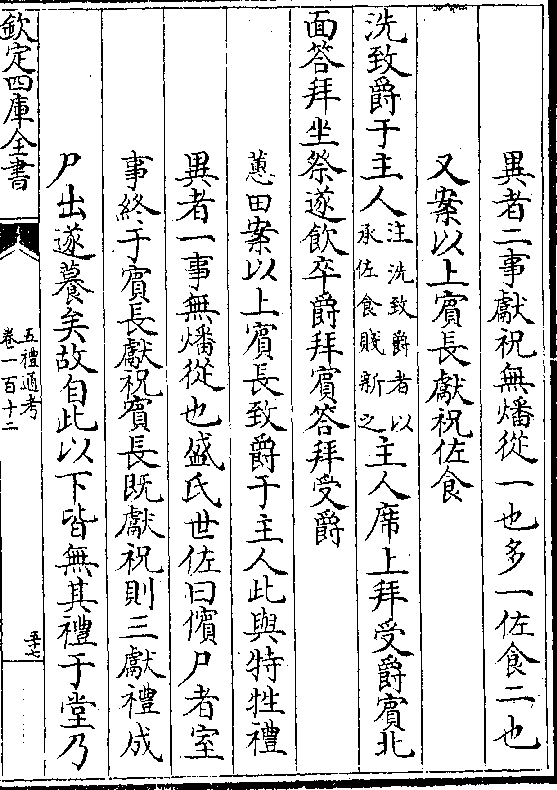 異者二事獻祝無燔從一也多一佐食二也
又案以上賓長獻祝佐食
洗致爵于主人注洗致爵者以承佐食賤新之主人席上拜受爵賓北
面答拜坐祭遂飲卒爵拜賓答拜受爵
蕙田案以上賓長致爵于主人此與特牲禮
異者一事無燔從也盛氏世佐曰儐尸者室
事終于賓長獻祝賓長既獻祝則三獻禮成
尸出遂養矣故自此以下皆無其禮于堂乃
欽定四庫全書
五禮通考
卷一百十二
五十七